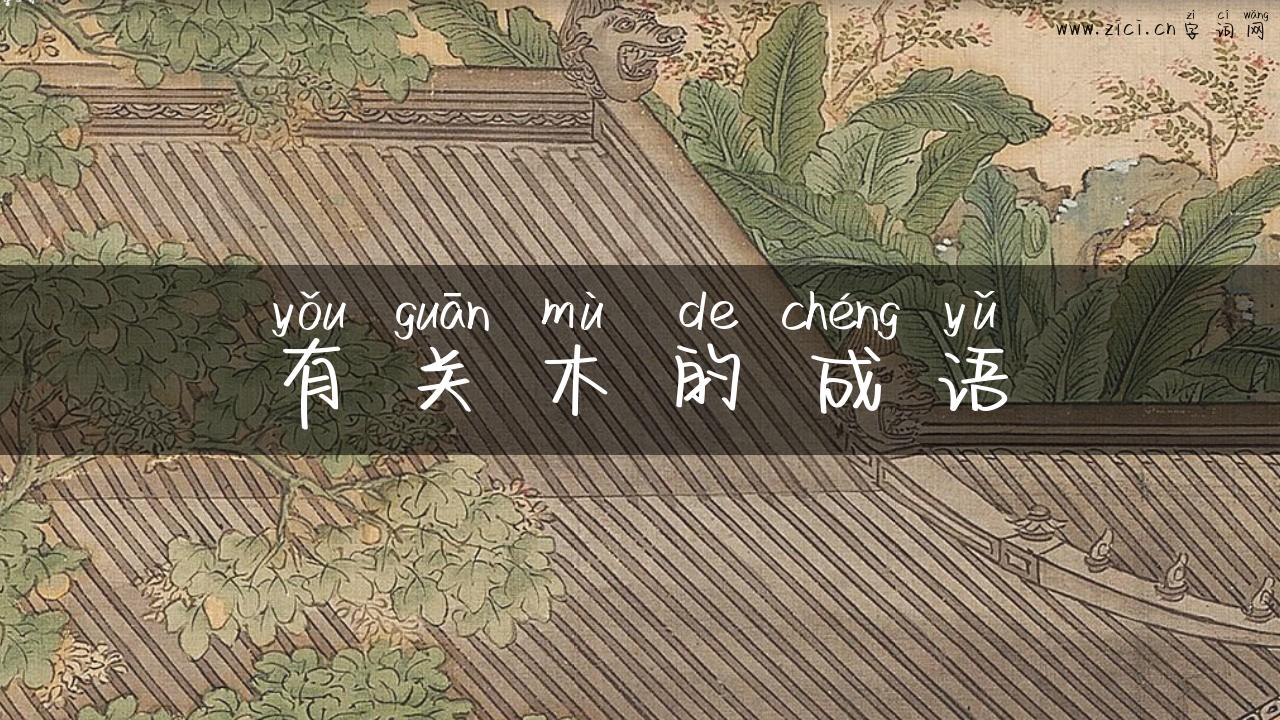 zì cí wǎng
www.zici.cn 字词网
yǒu guān mù de chéng yǔ
有关木的成语